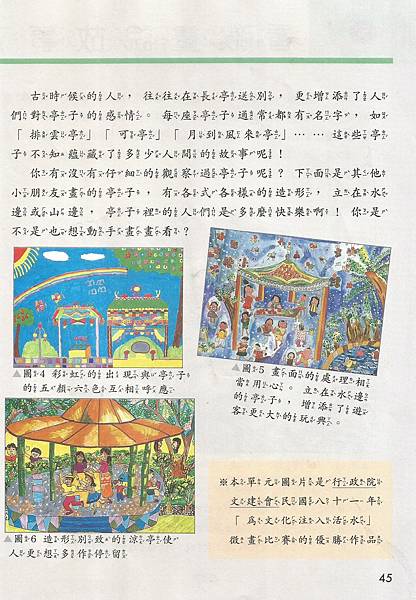 古時候的人，往往在長亭送別，更增添了人
們對亭子的感情。每座亭子通常都有名字，如
「排雲亭」「可亭」「月到風來亭」……這些亭
子不知蘊藏了多少人間的故事呢！
你有沒有仔細的觀察過亭子呢？下面是其他
小朋友畫的亭子，有各式各樣的造形，立在水
邊或山邊，亭子裡的人們是多麼快樂啊！你是
不是也想動手畫畫看？
▲圖4 彩虹的出現與亭子
的五顏六色互相呼應
▲圖5 畫面的處理相
當用心。立在水邊
的亭子，增添了遊
客更大的玩興。
▲圖6 造形別致的涼亭使
人更想多作停留
※本單元圖片是行政院
文建會民國八十一年
「為文化注入活水」
徵畫比賽的優勝作品
45